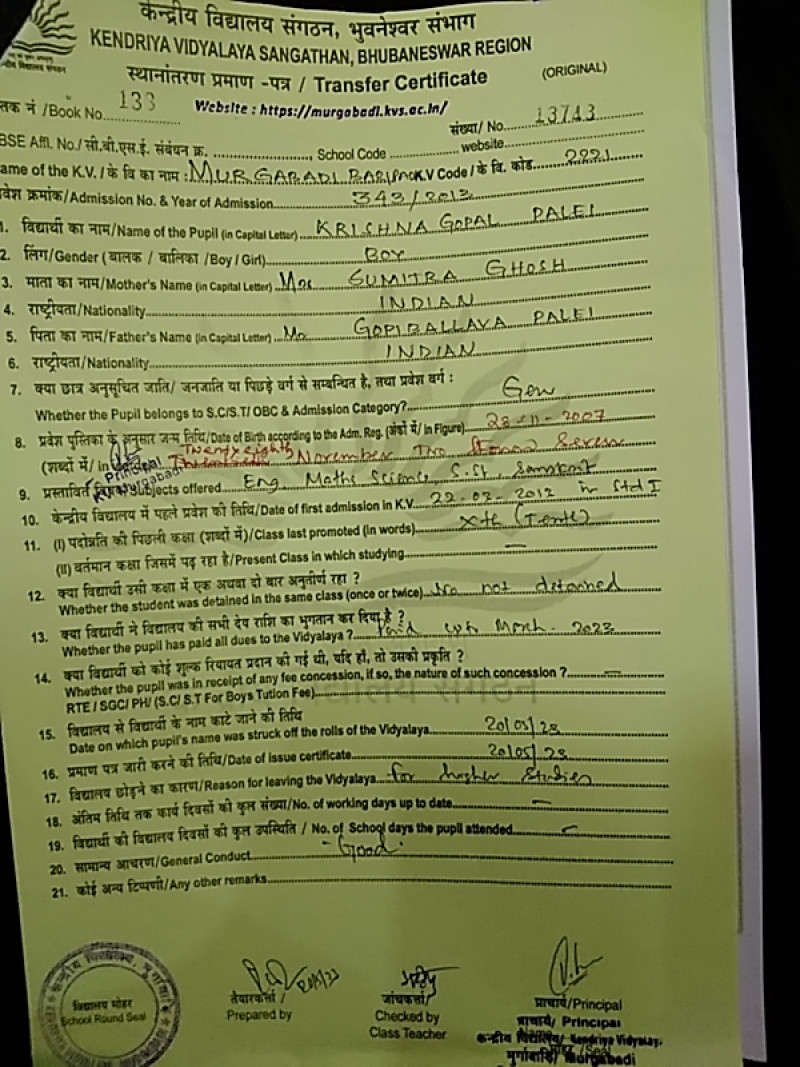 केन्द्रीय विद्यालय संगठन, भुवनेश्वर संभाग
KENDRIYA VIDYALAYA SANGATHAN, BHUBANESWAR REGION
स्थानांतरण प्रमाण -पत्र / Transfer Certificate (ORIGINAL)
तक नं /Book No. 133 Website : https://murgabadi.kvs.ac.in/ संख्या/ No. 13743
BSE Affl. No./ सी.बी.एस.ई. संबंधन क्र. , School Code website
ame of the K.V. / के वि का नाम : MURGABADI BARIPADA K.V Code / के वि. कोड 2221
वेश क्रमांक/Admission No. & Year of Admission 343/2012
1. विद्यार्थी का नाम/Name of the Pupil (in Capital Letter) KRISHNA GOPAL PALEI
2. लिंग/Gender ( बालक / बालिका /Boy / Girl) BOY
3. माता का नाम/Mother's Name (in Capital Letter) Mrs SUMITRA GHOSH
4. राष्ट्रीयता/Nationality INDIAN
5. पिता का नाम/Father's Name (in Capital Letter) Mr GOPIBALLAVA PALEI
6. राष्ट्रीयता/Nationality INDIAN
7. क्या छात्र अनुसूचित जाति/ जनजाति या पिछड़े वर्ग से सम्बन्धित है, तथा प्रवेश वर्ग :
Whether the Pupil belongs to S.C/S.T/ OBC & Admission Category? Gen
8. प्रवेश पुस्तिका के अनुसार जन्म तिथि/Date of Birth according to the Adm. Reg. (अंकों में/ In Figure) 28-11-2007
(शब्दों में/ in Twenty eighth November Two Seven
Principal
KV Murgabadi
9. प्रस्तावित Subjects offered Eng, Maths Science, S.St, Sanskrit
10. केन्द्रीय विद्यालय में पहले प्रवेश की तिथि/Date of first admission in K.V. 22-03-2012 in Std I
11. (I) पदोन्नति की पिछली कक्षा (शब्दों में)/Class last promoted (in words) Xth (Tenth)
(II) वर्तमान कक्षा जिसमें पढ़ रहा है/Present Class in which studying —
12. क्या विद्यार्थी उसी कक्षा में एक अथवा दो बार अनुतीर्ण रहा ?
Whether the student was detained in the same class (once or twice) No not detained
13. क्या विद्यार्थी ने विद्यालय की सभी देय राशि का भुगतान कर दिया है ?
Whether the pupil has paid all dues to the Vidyalaya ? Paid upto March - 2023
14. क्या विद्यार्थी को कोई शुल्क रियायत प्रदान की गई थी, यदि हाँ, तो उसकी प्रकृति ?
Whether the pupil was in receipt of any fee concession, if so, the nature of such concession ? —
RTE / SGC/ PH/ (S.C/ S.T For Boys Tution Fee)
15. विद्यालय से विद्यार्थी के नाम काटे जाने की तिथि
Date on which pupil's name was struck off the rolls of the Vidyalaya 20/05/23
16. प्रमाण पत्र जारी करने की तिथि/Date of issue certificate 20/05/23
17. विद्यालय छोड़ने का कारण/Reason for leaving the Vidyalaya for higher studies
18. अंतिम तिथि तक कार्य दिवसों की कुल संख्या/No. of working days up to date —
19. विद्यार्थी की विद्यालय दिवसों की कुल उपस्थिति / No. of School days the pupil attended —
20. सामान्य आचरण/General Conduct Good
21. कोई अन्य टिप्पणी/Any other remarks
विद्यालय मोहर
School Round Seal
तैयारकर्ता /
Prepared by
जांचकर्ता/
Checked by
Class Teacher
प्राचार्य/Principal
प्राचार्य/ Principal
केन्द्रीय विद्यालय/ Kendriya Vidyalay.
मुर्गाबाड़ि/ Murgabadi